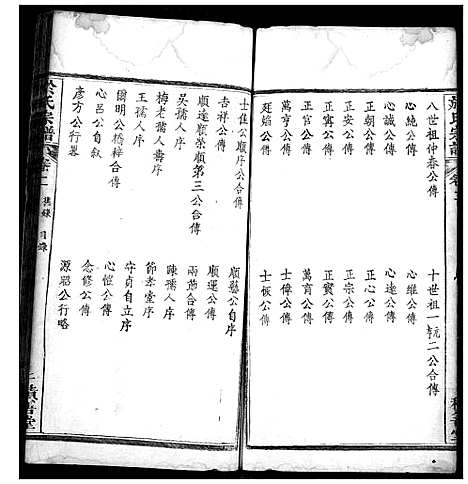 八世祖仲春公傳
心純公傳
心誠公傳
正朝公傳
正寅公傳
正官公傳
萬亨公傳
廷焰公傳
十世祖一統二公合傳
心維公傳
心達公傳
正心公傳
正宗公傳
正賓公傳
萬育公傳
士偉公傳
士恢公傳
士佳公順序公合傳
吉祥公傳
順達順榮順第三公合傳
吳孺人序
梅老孺人壽序
王孺人序
國明公橋梓合傳
心呂公自傳
彥方公行畧
順顯公自序
順運公傳
兩爺公傳
陳孺人序
節孝堂序
守貞自立序
心愷公傳
念修公傳
源昭公行略
氏宗譜
卷一
目錄